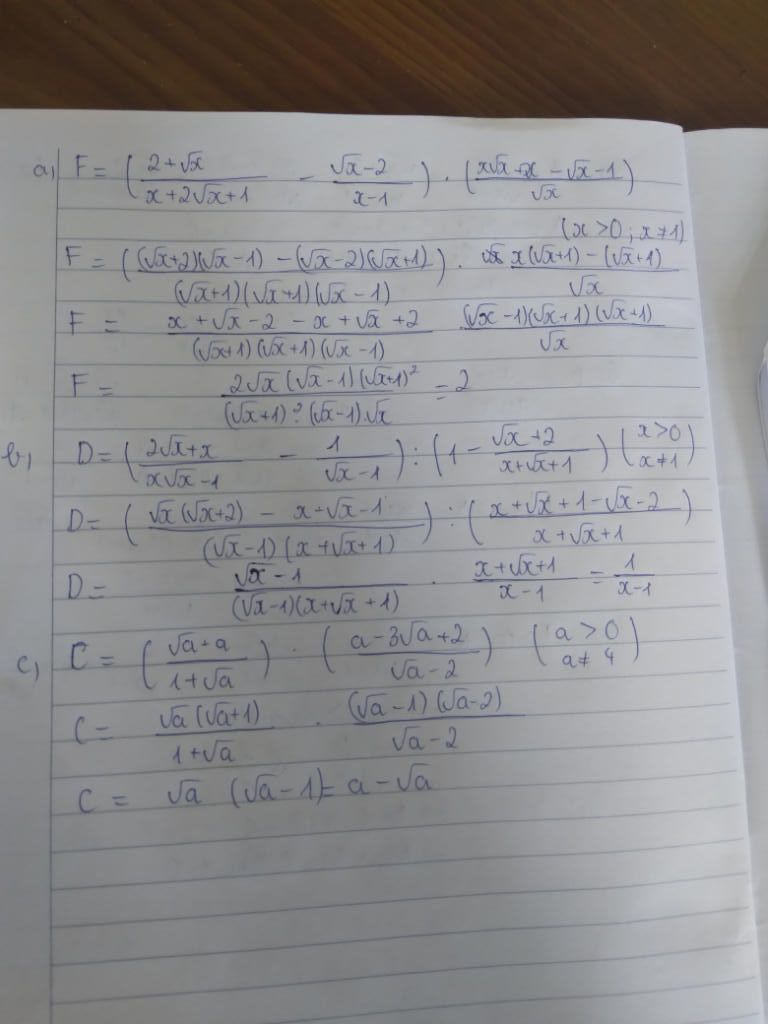 a, F = ( (2+√x)/(x+2√x+1) - (√x-2)/(x-1) ) . ( (x√x+x-√x-1)/√x )
(x>0; x≠1)
F = ( ((√x+2)(√x-1) - (√x-2)(√x+1))/((√x+1)(√x+1)(√x-1)) ) . (x(√x+1) - (√x+1))/√x
F = (x+√x-2-x+√x+2)/((√x+1)(√x+1)(√x-1)) ((√x-1)(√x+1)(√x+1))/√x
F = (2√x(√x-1)(√x+1)²)/((√x+1)²(√x-1).√x) = 2
b, D = ( (2√x+x)/(x√x-1) - 1/(√x-1) ) : ( 1 - (√x+2)/(x+√x+1) ) (x>0 x≠1)
D = ( (√x(√x+2) - x+√x-1)/((√x-1)(x+√x+1)) ) : ( (x+√x+1-√x-2)/(x+√x+1) )
D = (√x-1)/((√x-1)(x+√x+1)) . (x+√x+1)/(x-1) = 1/(x-1)
c, C = ( (√a+a)/(1+√a) ) . ( (a-3√a+2)/(√a-2) ) (a>0 a≠4)
C = (√a(√a+1))/(1+√a) . ((√a-1)(√a-2))/(√a-2)
C = √a (√a-1) = a-√a